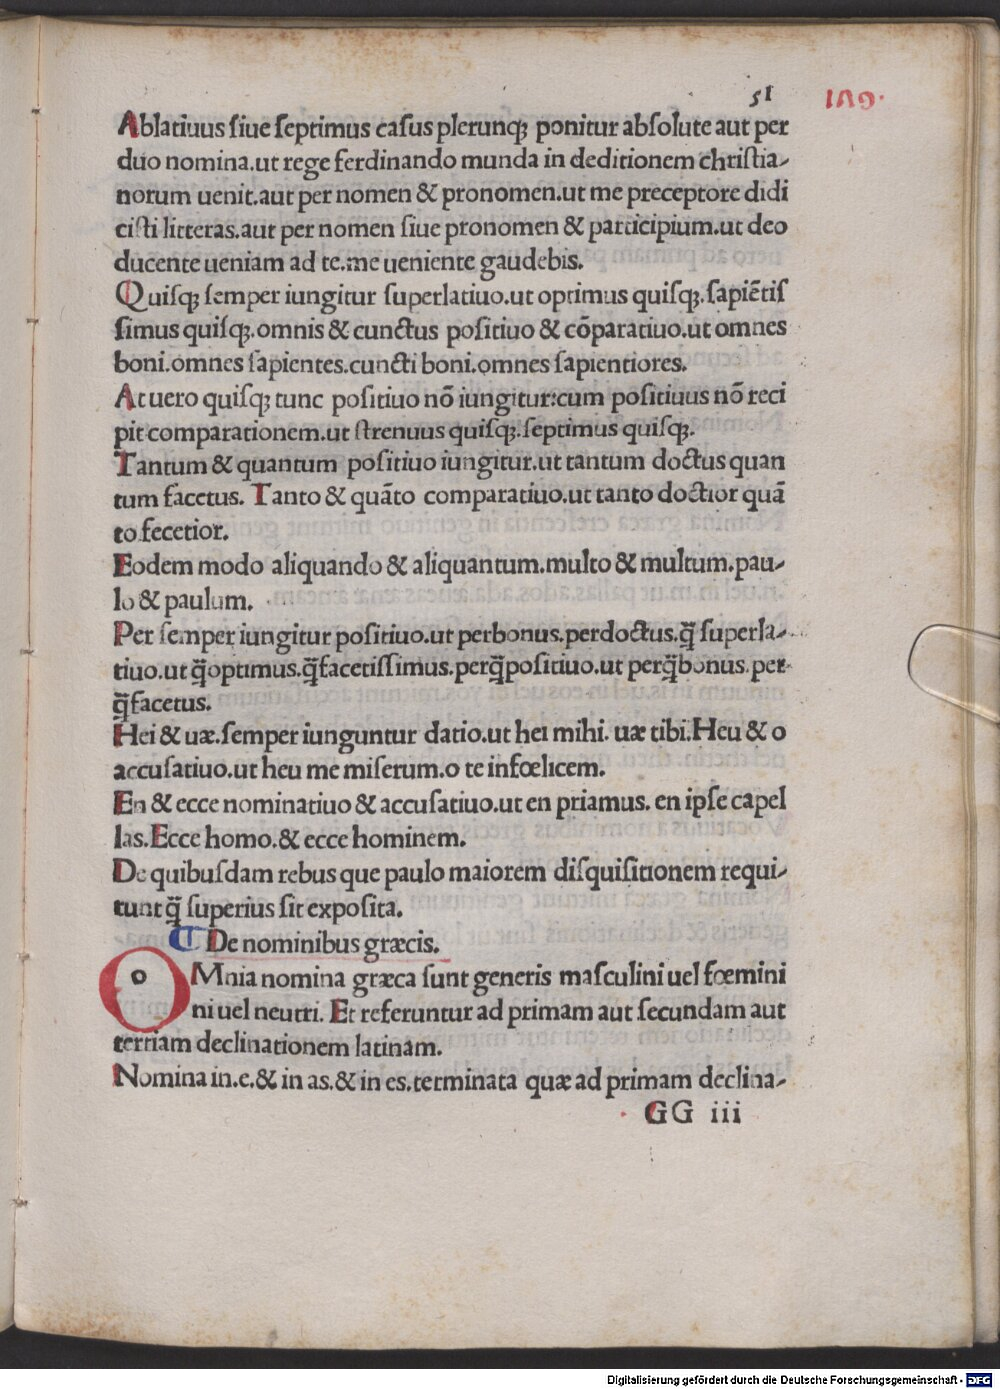 51
Ablatiuus siue septimus casus plerunqꝫ ponitur absolute aut per
duo nomina.ut rege ferdinando munda in deditionem christia-
norum uenit.aut per nomen & pronomen.ut me preceptore didi
cisti litteras.aut per nomen siue pronomen & participium.ut deo
ducente ueniam ad te.me ueniente gaudebis.
Quisqꝫ semper iungitur superlatiuo.ut optimus quisqꝫ.sapiẽtis
simus quisqꝫ.omnis & cunctus positiuo & cõparatiuo.ut omnes
boni.omnes sapientes.cuncti boni.omnes sapientiores.
At uero quisqꝫ tunc positiuo nõ iungitur:cum positiuus nõ reci
pit comparationem.ut strenuus quisqꝫ.septimus quisqꝫ.
Tantum & quantum positiuo iungitur.ut tantum doctus quan
tum facetus. Tanto & quãto comparatiuo.ut tanto doctior quã
to fecetior.
Eodem modo aliquando & aliquantum.multo & multum.pau-
lo & paulum.
Per semper iungitur positiuo.ut perbonus.perdoctus.q̃ superla-
tiuo.ut q̃optimus.q̃facetissimus.perq̃positiuo.ut perq̃bonus.per
q̃facetus.
Hei & uæ.semper iunguntur datio.ut hei mihi. uæ tibi.Heu & o
accusatiuo.ut heu me miserum.o te infœlicem.
En & ecce nominatiuo & accusatiuo.ut en priamus. en ipse capel
las.Ecce homo.& ecce hominem.
De quibusdam rebus que paulo maiorem disquisitionem requi-
runt q̃ superius sit exposita.
De nominibus græcis.
OMnia nomina græca sunt generis masculini uel fœmini
ni uel neutri. Et referuntur ad primam aut secundam aut
tertiam declinationem latinam.
Nomina in.e.& in as.& in es.terminata quæ ad primam declina-
GG iii
Digitalisierung gefördert durch die Deutsche Forschungsgemeinschaft - DFG